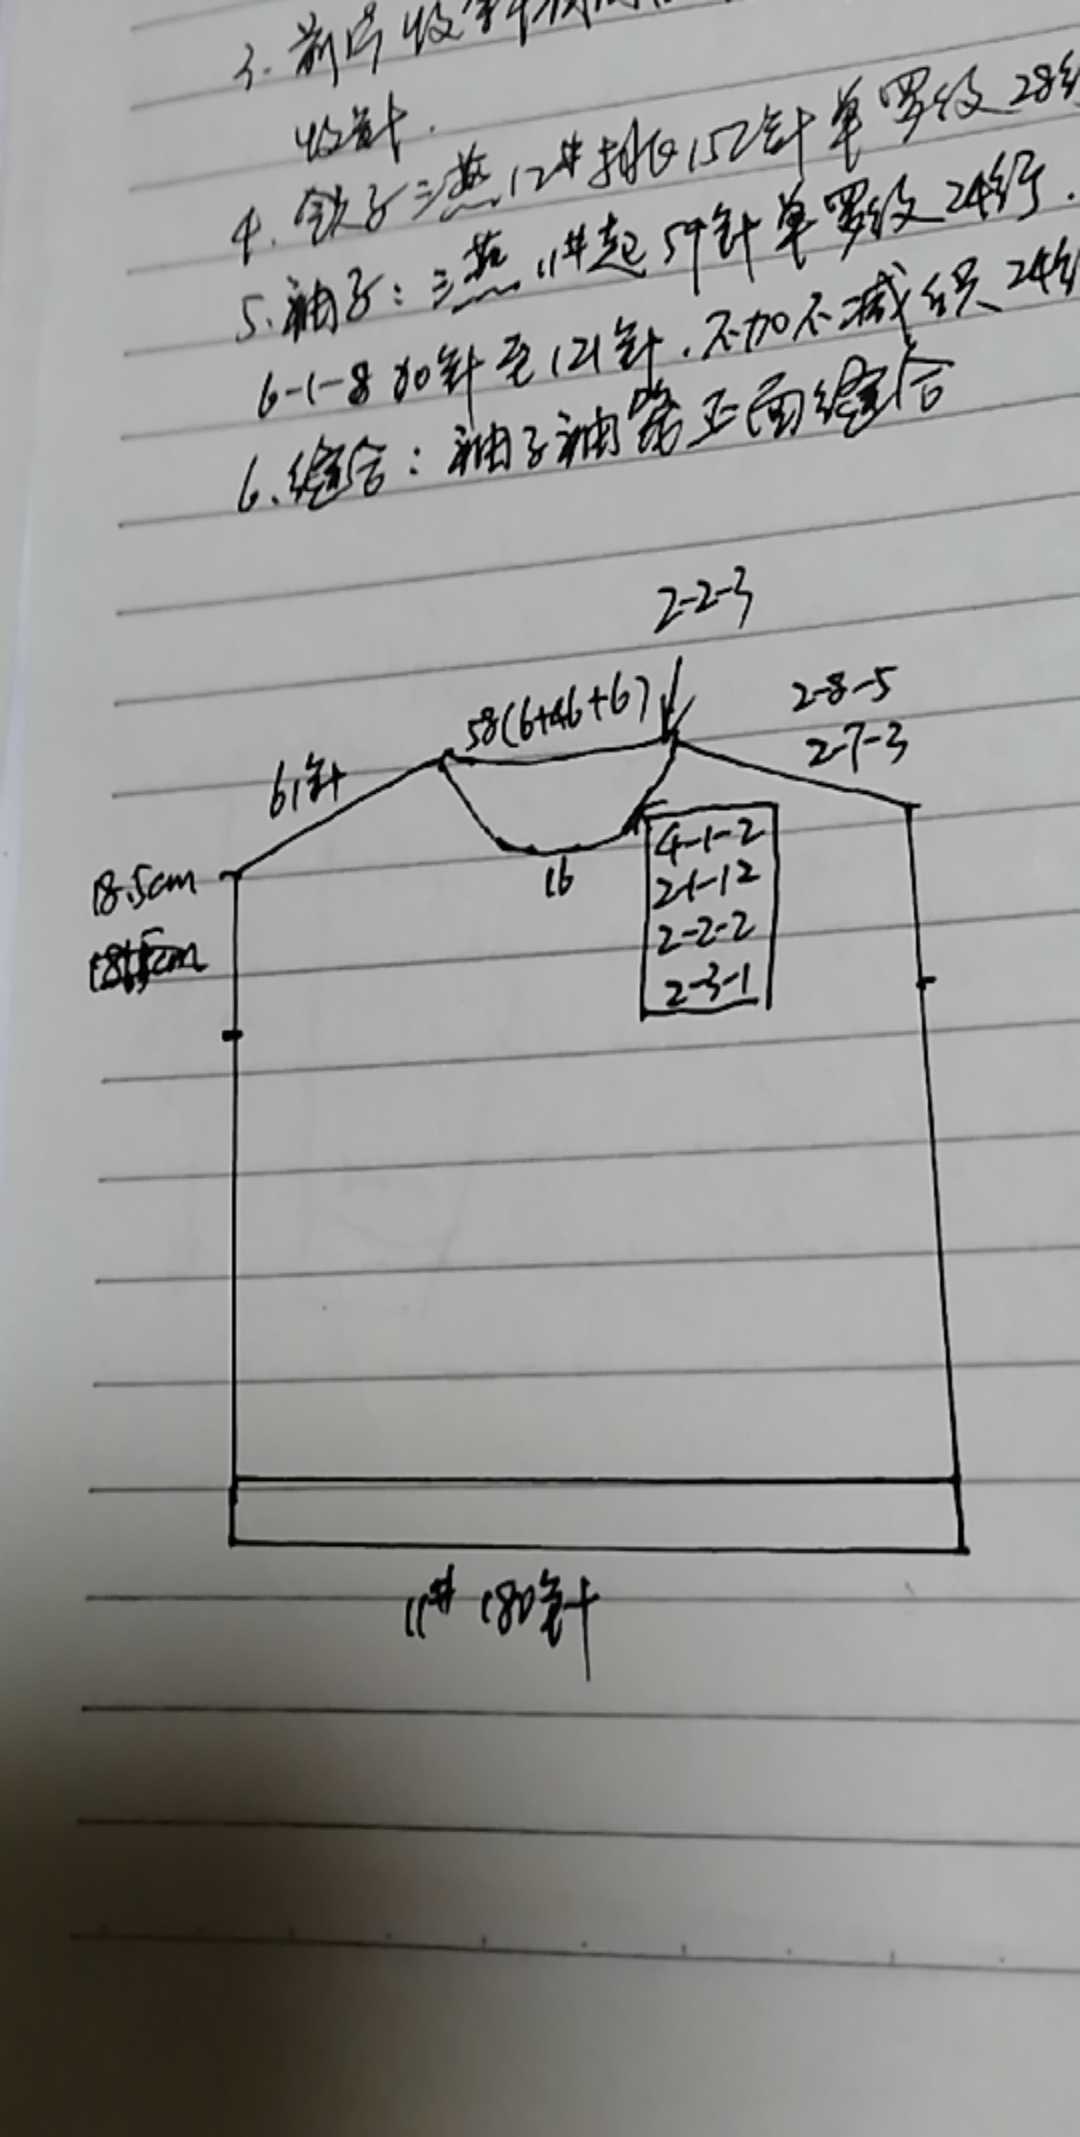 3. 前片收针
收针.
4. 领子三燕12#挑织152针单罗纹28行
5. 袖子: 三燕 11#起59针单罗纹24行.
6-1-8 加针至121针. 不加不减织24行
6. 缝合: 袖子袖笼正面缝合
2-2-3
58(6+46+6)
2-8-5
2-7-3
61针
4-1-2
18.5cm
16
2-1-12
2-2-2
2-3-1
11# 180针